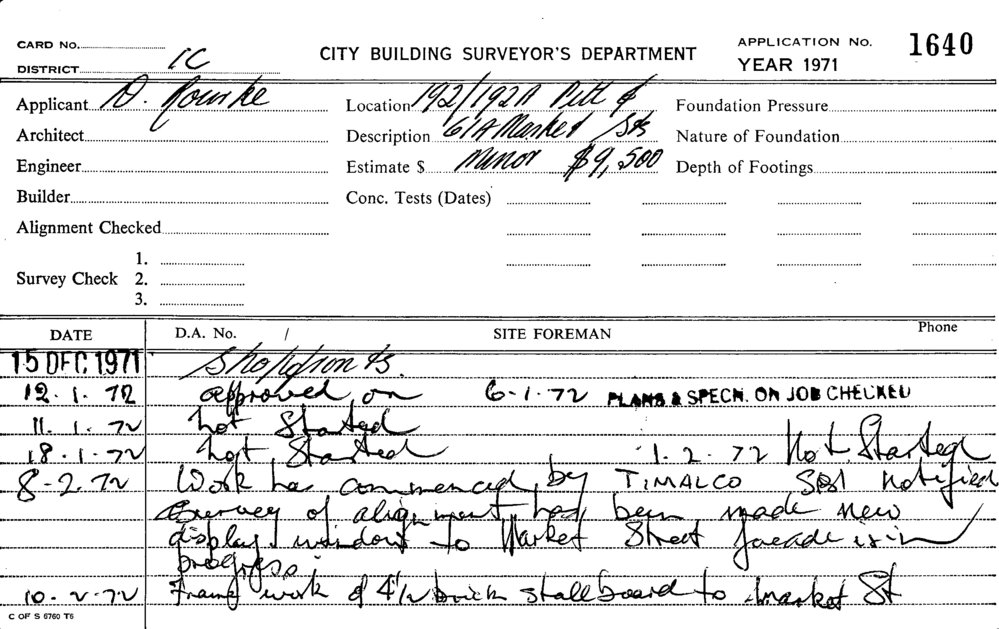 CARD No.
DISTRICT 1C
CITY BUILDING SURVEYOR'S DEPARTMENT
APPLICATION No. 1640
YEAR 1971
Applicant D. Rourke
Location 192/192A Pitt &
Foundation Pressure
Architect
Description 61A Market Sts
Nature of Foundation
Engineer
Estimate $ Minor $9,500
Depth of Footings
Builder
Conc. Tests (Dates)
Alignment Checked
1.
Survey Check 2.
3.
DATE D.A. No. / SITE FOREMAN Phone
15 DEC 1971 Shopfronts.
12.1.72 approved on 6-1-72 PLANS & SPECN. ON JOB CHECKED
11.1.72 Not Started
18-1-72 Not Started 1.2.72 Not Started
8-2.72 Work has commenced by TIMALCO notified
Survey of alignment has been made new
display windows to Market Street facade is in
progress.
10-2-72 Frame work & 4½ brick stallboard to market St
C OF S 6760 T6